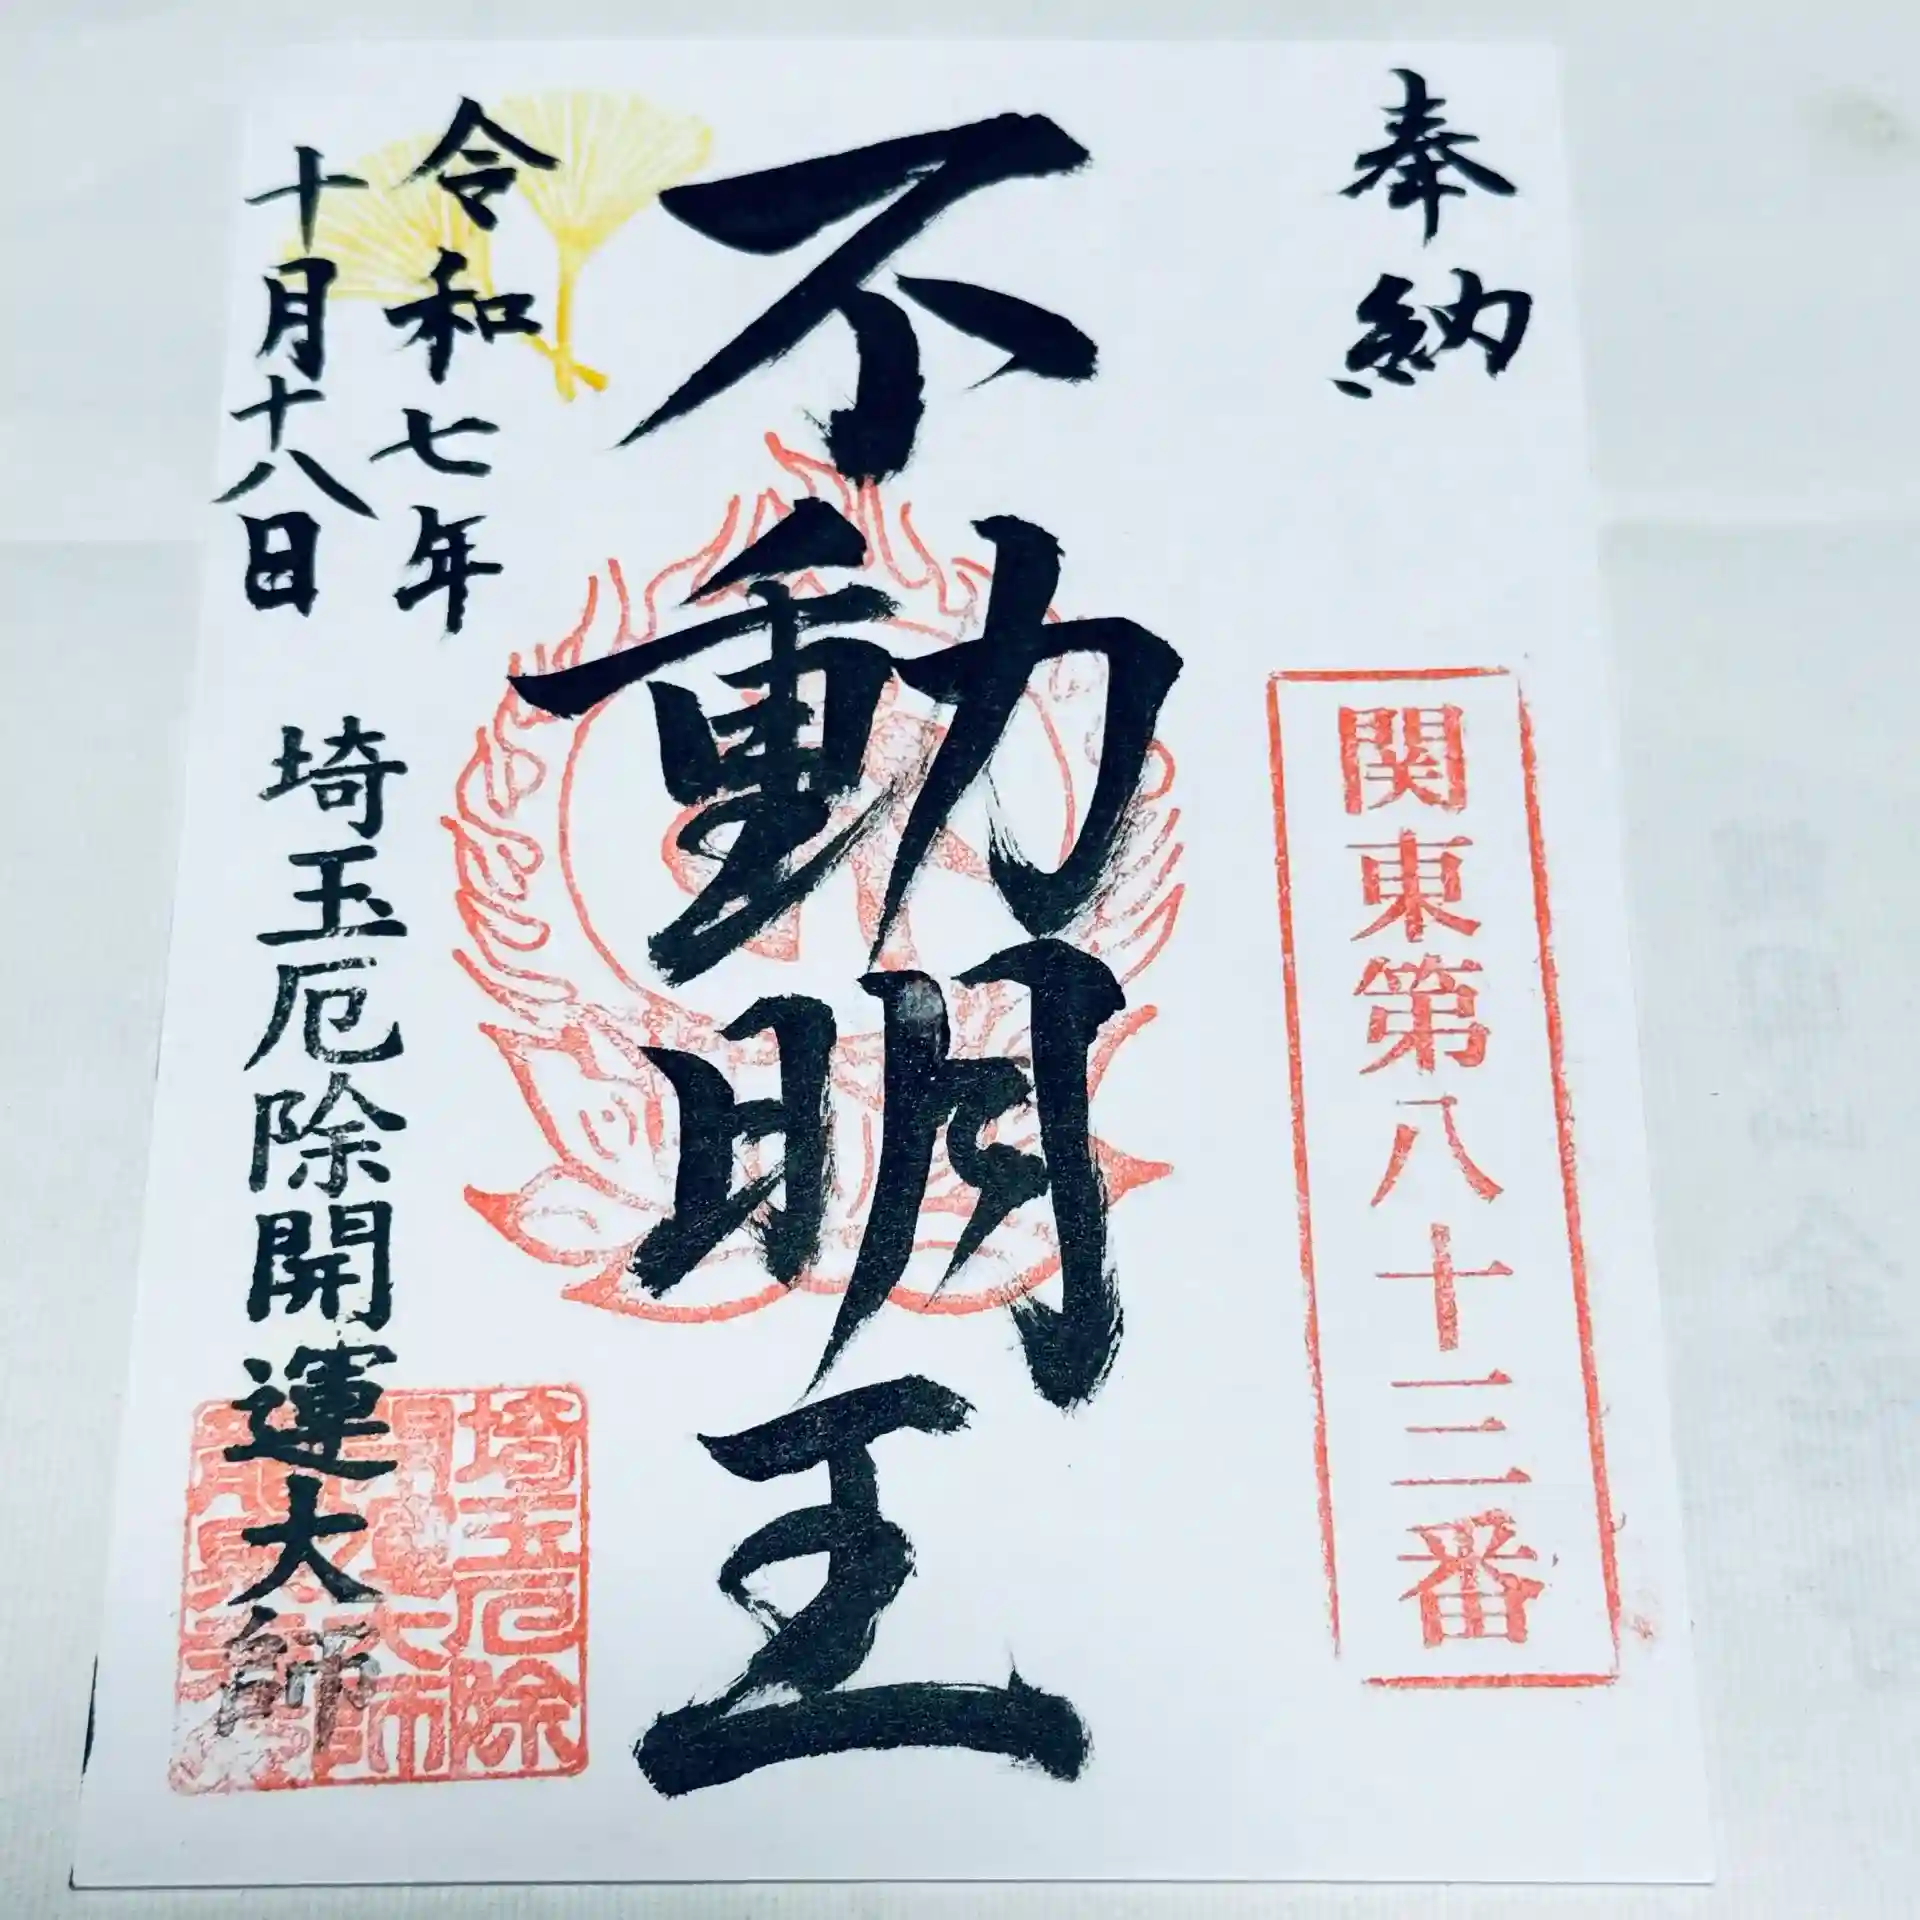 奉納
関東第八十三番
不動明王
令和七年
十月十八日
埼玉厄除開運大師
埼玉厄除
開運大師